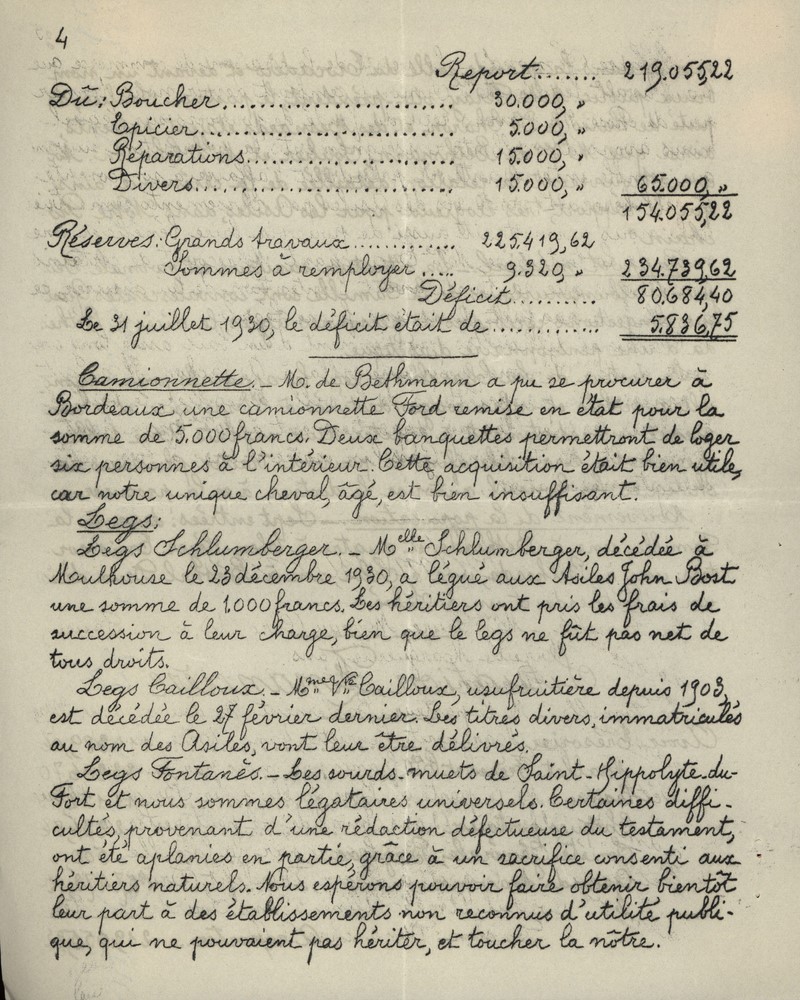 4
Report....... 219.055,22
Dû: Boucher........................ 30.000, „
Epicier.......................... 5.000, „
Réparations..................... 15.000, „
Divers.......................... 15.000, „ 65.000, „
154.055,22
Réserves: Grands travaux............. 225.419,62
Sommes à remployer..... 9.320 „ 234.739,62
Déficit.......... 80.684,40
Le 31 juillet 1930, le déficit était de............. 5.836,75
Camionnette. _ M. de Bethmann a pu se procurer à
Bordeaux une camionnette Ford remise en état pour la
somme de 5.000 francs. Deux banquettes permettront de loger
six personnes à l'intérieur. Cette acquisition était bien utile,
car notre unique cheval, âgé, est bien insuffisant.
Legs:
Legs Schlumberger. _ Melle Schlumberger, décédée à
Mulhouse le 23 décembre 1930, a légué aux Asiles John Bost
une somme de 1.000 francs. Les héritiers ont pris les frais de
succession à leur charge, bien que le legs ne fût pas net de
tous droits.
Legs Cailloux. _ Mme Vve Cailloux, usufruitière depuis 1903,
est décédée le 27 février dernier. Les titres divers, immatriculés
au nom des Asiles, vont leur être délivrés.
Legs Fontanès. _ Les sourds-muets de Saint-Hippolyte-du-
Fort et nous sommes légataires universels. Certaines diffi-
cultés, provenant d'une rédaction défectueuse du testament,
ont été aplanies en partie, grâce à un sacrifice consenti aux
héritiers naturels. Nous espérons pouvoir faire obtenir bientôt
leur part à des établissements non reconnus d'utilité publi-
que, qui ne pouvaient pas hériter, et toucher la nôtre.